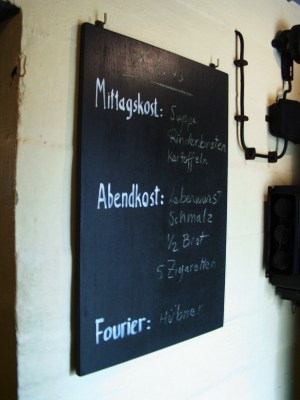 Mittagskost: Suppe
Rinderbraten
Kartoffeln
Abendkost: Leberwurst
Schmalz
½ Brot
5 Zigaretten
Fourier: Hübner